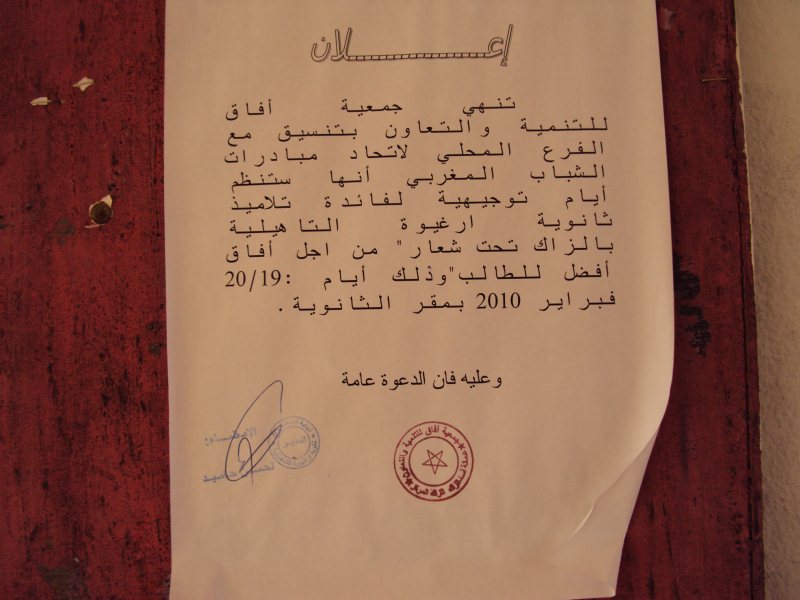 إعـــــــلان
تنهي جمعية أفاق
للتنمية والتعاون بتنسيق مع
الفرع المحلي لاتحاد مبادرات
الشباب المغربي أنها ستنظم
أيام توجيهية لفائدة تلاميذ
ثانوية ارغيوة التاهيلية
بالزاك تحت شعار" من اجل أفاق
أفضل للطالب"وذلك أيام :20/19
فبراير 2010 بمقر الثانوية.
وعليه فان الدعوة عامة
الإمضاء:
المدير
جمعية أفاق للتنمية والتعاون